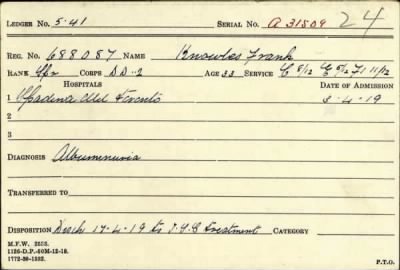 LEDGER NO. 5-41 SERIAL NO. A 31509 24
REG. NO. 688087 NAME Knowles Frank
RANK Spr CORPS DD-2 AGE 33 SERVICE C 8/12 E 5/12 F1 11/12
HOSPITALS DATE OF ADMISSION
1 Spadina Mil Toronto 3-4-19
2
3
DIAGNOSIS Albumenuria
TRANSFERRED TO
DISPOSITION Disch 17-4-19 to treatment CATEGORY
M.F.W. 2553.
1126-D.P.-50M-12-18.
1772-39-1392.
P.T.O.